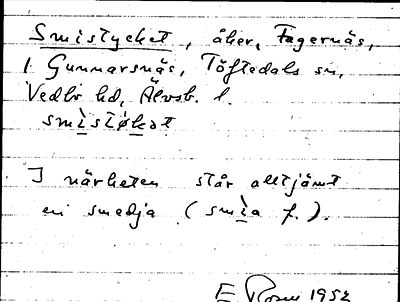 Smistycket, åker, Fagernäs,
1 Gunnarsnäs, Töftedals sn,
Vedbo hd, Älvsb. l.
smìstøkət
I närheten står alltjämt
en smedja (smìa f.).
E. 1952